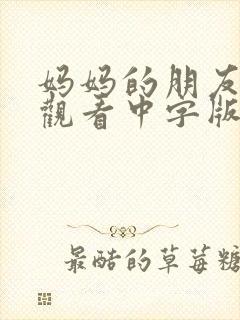 妈妈的朋友
觀看中字版
最酷的草莓糖